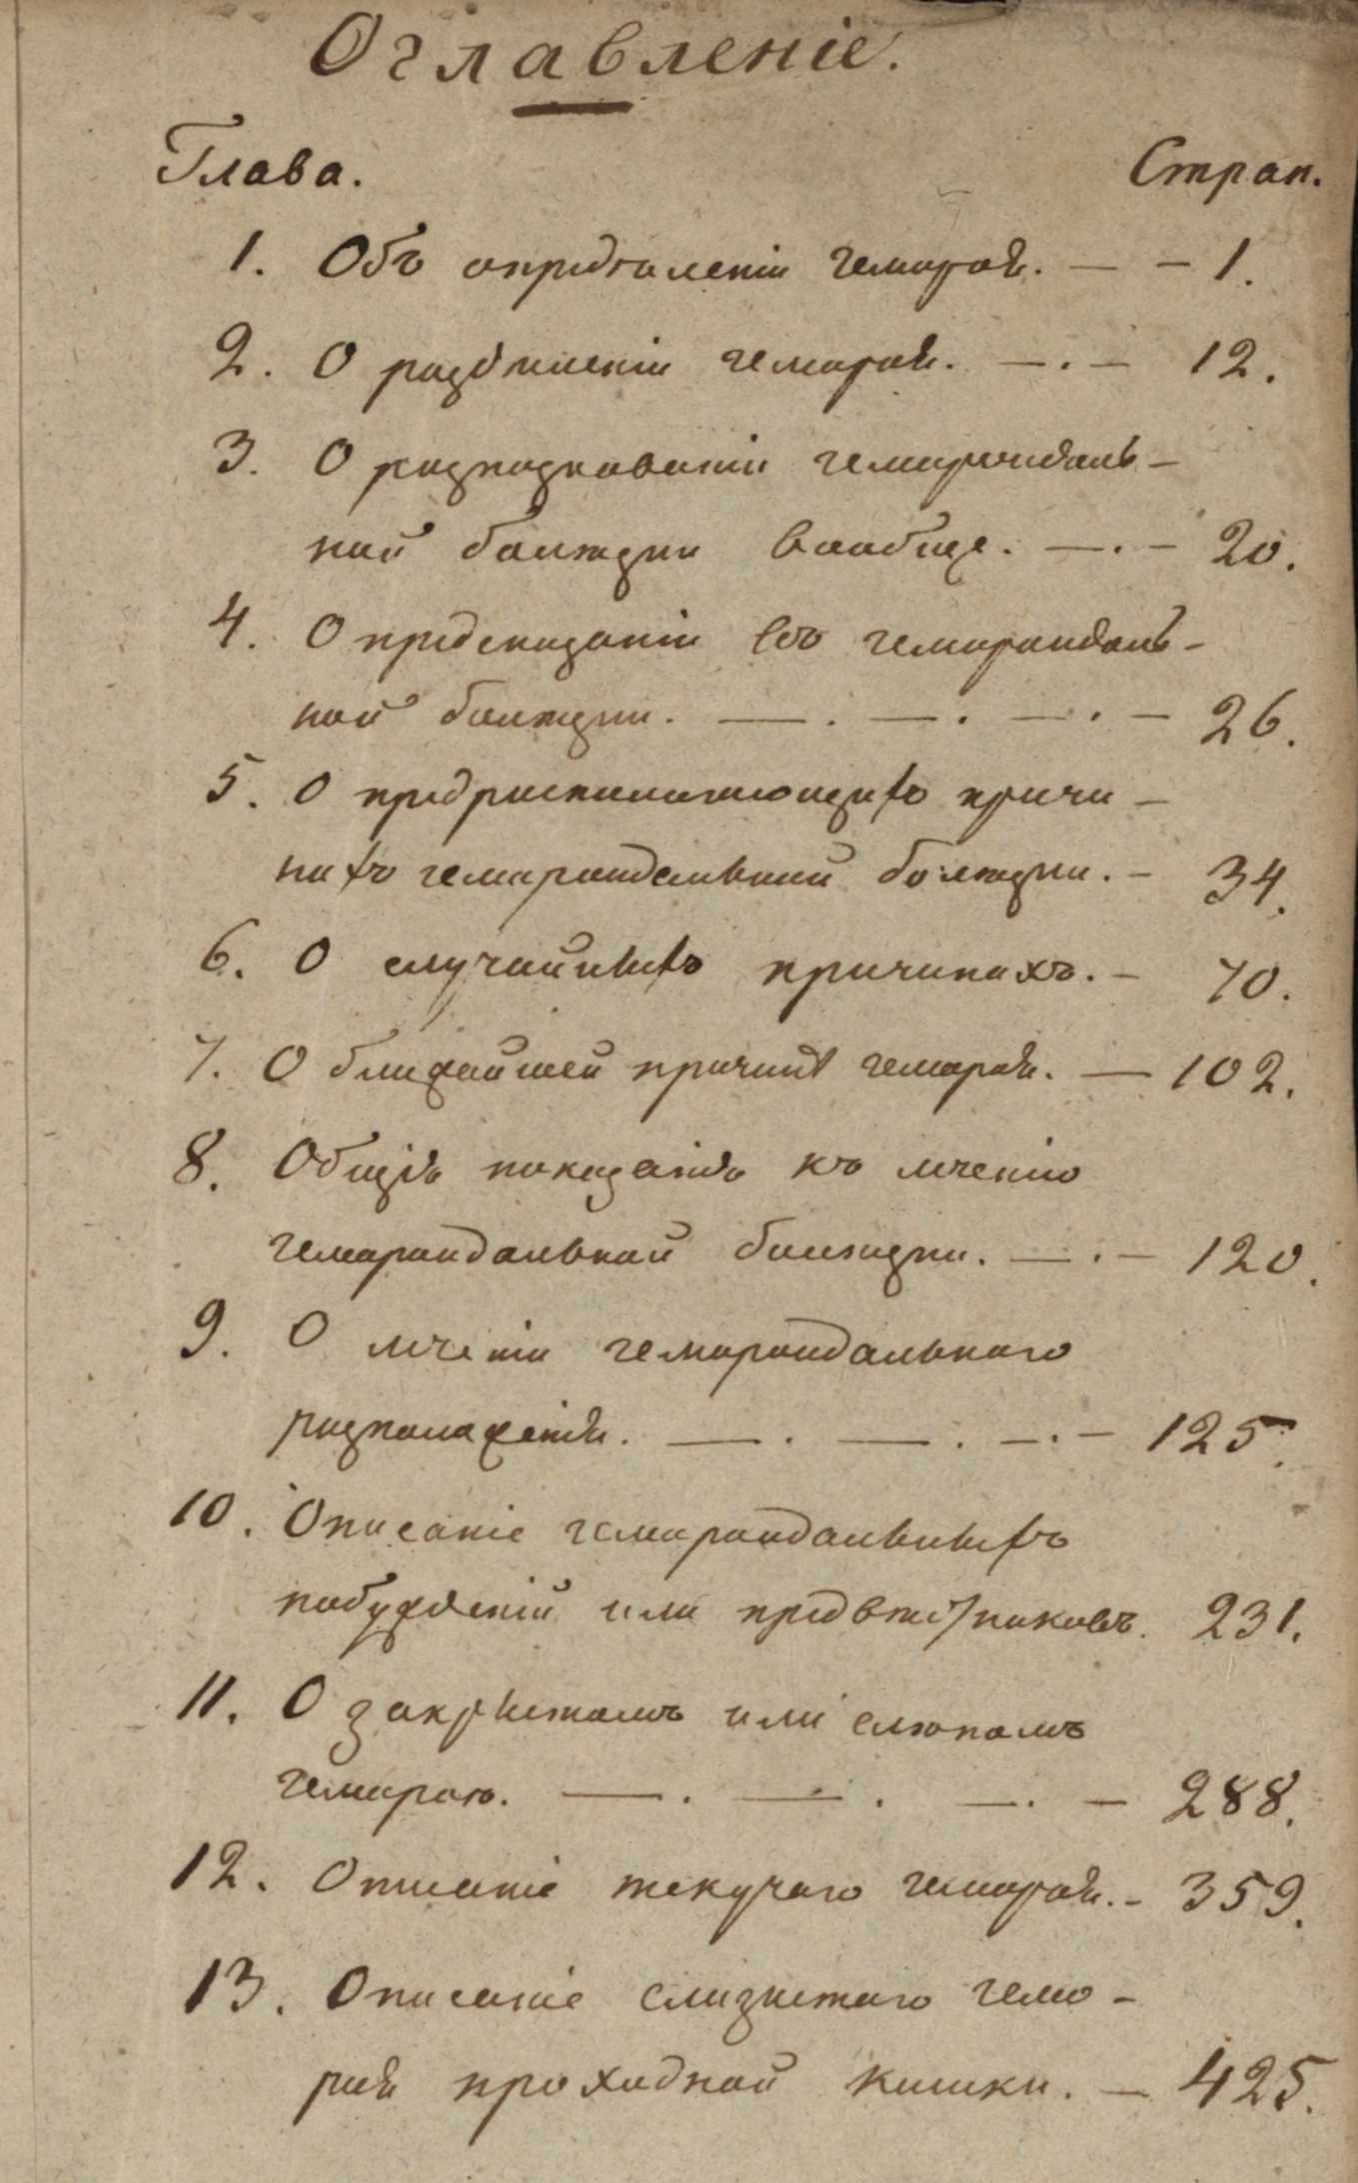 Оглавленіе.
Глава. Стран.
1. Объ опредѣленіи геморой. — – 1.
2. О раздѣленіи геморой. —.— 12.
3. О разпознаваніи гемороидаль-
ной болѣзни вообще. —.— 20.
4. О предсказаніи въ гемороидаль-
ной болѣзни. —.—.—.— 26.
5. О предраспологающихъ причи-
нахъ гемороидальной болѣзни. – 34.
6. О случайныхъ причинахъ. – 70.
7. О ближайшей причинѣ геморой. — 102.
8. Общія показанія къ лѣченію
гемороидальной болѣзни. —.— 120.
9. О лѣченіи гемороидальнаго
разположенія. —.—.—.— 125.
10. Описаніе гемороидальныхъ
побужденій или предвѣстниковъ. 231.
11. О закрытомъ или слѣпомъ
гемороѣ. —.—.—.— 288.
12. Описаніе текучаго геморой. – 359.
13. Описаніе слизистаго гемо-
рой проходной кишки. — 425.